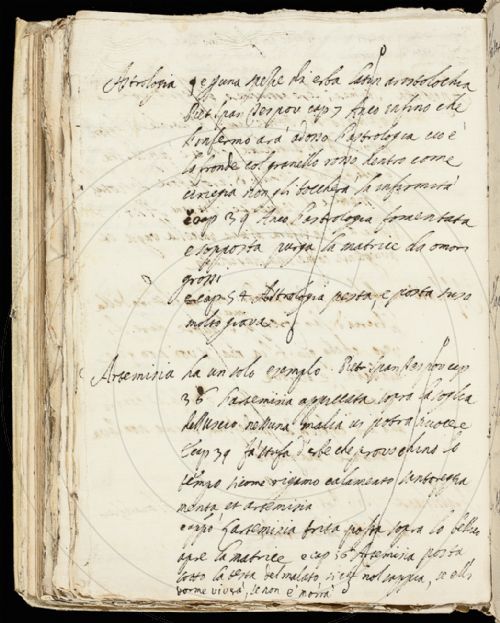 Astrologia e una spetie di erba latin aristolochia
Piet Span Tes pov cap 7 Anco infino che
l'infermo ara' adosso l'astrologia cio è
le fronde col granello rosso dentro come
ciriegia non gli tocchera la infirmita'
e cap 39 Anco l'astrologia fomentata
e sopposta purga la matrice da omori
grossi
e cap 54 Astrologia pesta, e posta suso
molto giova
Artemisia ha un solo esemplo Piet Span Tes pov cap
36 l'artemisia appiccata sopra la soglia
dell'uscio nessuna malia vi potra nuocere
e cap 39 fa' stufa d'erbe che provochino lo
come rigamo calamento
menta, et artemisia
l'artemisia fritta posta sopra lo bellico
apre la matrice e cap 56 Artemisia posta
sotto la testa del malato, si che nol sappia, se elli
dorme vivera', se non è morrà